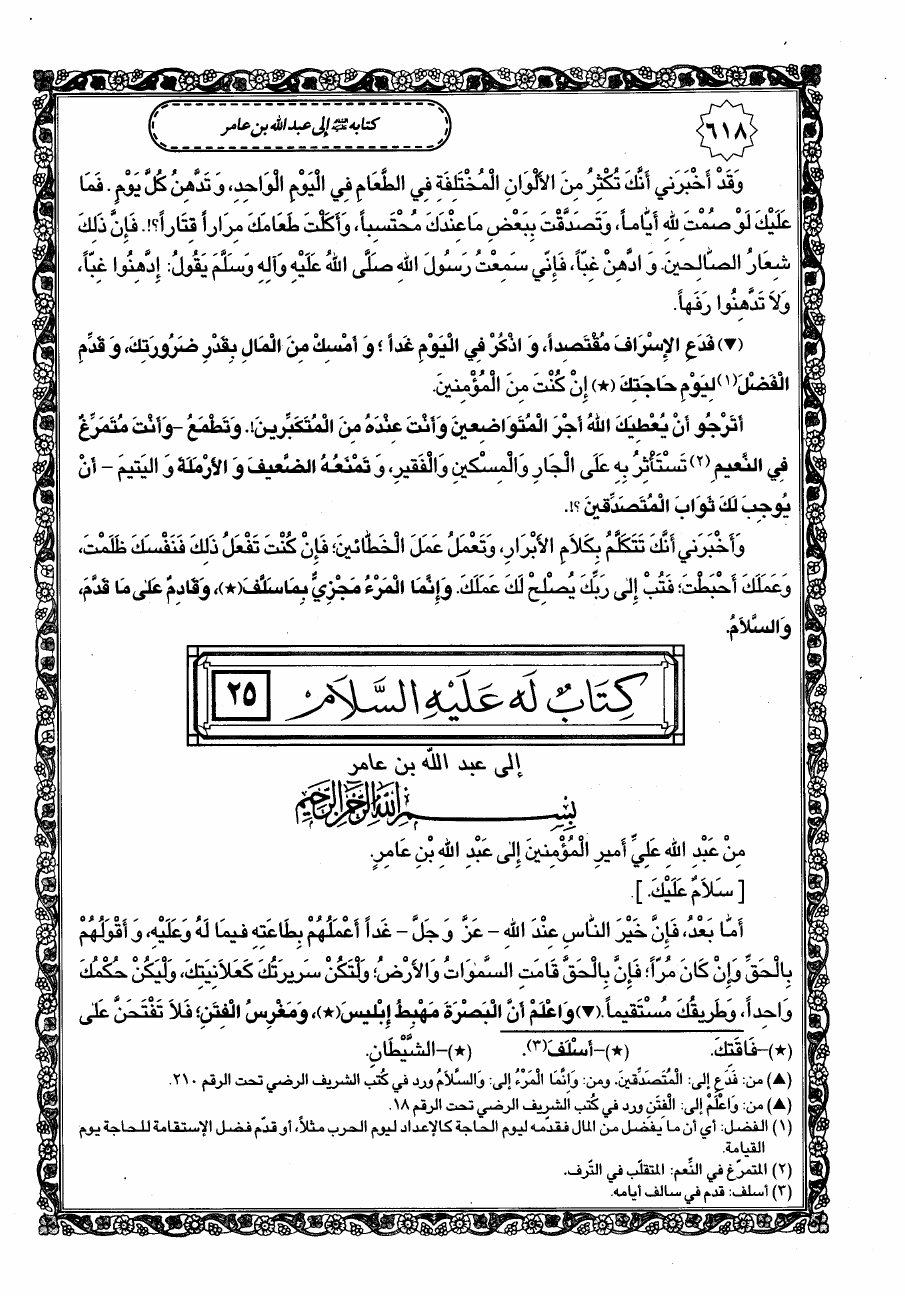 ٦١٨
كتابه عليه السلام إلى عبد الله بن عامر
وَقَدْ أَخْبَرَني أَنَّكَ تُكْثِرُ مِنَ الأَلْوَانِ الْمُخْتَلِفَةِ فِي الطَّعَامِ فِي الْيَوْمِ الْوَاحِدِ، وَ تَدَّهِنُ كُلَّ يَوْمٍ. فَمَا
عَلَيْكَ لَوْ صُمْتَ لِلّهِ أَيَّاماً، وَتَصَدَّقْتَ بِبَعْضِ مَا عِنْدَكَ مُحْتَسِباً، وَأَكَلْتَ طَعَامَكَ مِرَاراً قَتَاراً؟!. فَإِنَّ ذَلِكَ
شِعَارُ الصَّالِحينَ. وَ ادَّهِنْ غِبّاً، فَإِنّي سَمِعْتُ رَسُولَ اللهِ صَلَّى اللهُ عَلَيْهِ وَآلِهِ وَسَلَّمَ يَقُولُ: إِدَّهِنُوا غِبّاً،
وَلاَ تَدَّهِنُوا رَفَهاً.
(▼) فَدَعِ الإِسْرَافَ مُقْتَصِداً، وَ اذْكُرْ فِي الْيَوْمِ غَداً؛ وَ أَمْسِكْ مِنَ الْمَالِ بِقَدْرِ ضَرُورَتِكَ، وَ قَدِّمِ
الْفَضْلَ(١) لِيَوْمِ حَاجَتِكَ (★) إِنْ كُنْتَ مِنَ الْمُؤْمِنينَ.
أَتَرْجُو أَنْ يُعْطِيَكَ اللهُ أَجْرَ الْمُتَوَاضِعينَ وَأَنْتَ عِنْدَهُ مِنَ الْمُتَكَبِّرينَ!. وَتَطْمَعُ –وَأَنْتَ مُتَمَرِّغٌ
فِي النَّعيمِ(٢) تَسْتَأْثِرُ بِهِ عَلَى الْجَارِ وَالْمِسْكينِ وَالْفَقيرِ، وَ تَمْنَعُهُ الضَّعيفَ وَ الأَرْمَلَةَ وَ الْيَتيمَ – أَنْ
يُوجِبَ لَكَ ثَوَابَ الْمُتَصَدِّقينَ؟!.
وَأَخْبَرَني أَنَّكَ تَتَكَلَّمُ بِكَلاَمِ الأَبْرَارِ، وَتَعْمَلُ عَمَلَ الْخَطَّائينَ؛ فَإِنْ كُنْتَ تَفْعَلُ ذَلِكَ فَنَفْسَكَ ظَلَمْتَ،
وَعَمَلَكَ أَحْبَطْتَ؛ فَتُبْ إِلى رَبِّكَ يُصْلِحْ لَكَ عَمَلَكَ. وَإِنَّمَا الْمَرْءُ مَجْزِيٌّ بِمَا سَلَفَ(★)، وَقَادِمٌ عَلى مَا قَدَّمَ،
وَالسَّلاَمُ.
كِتَابٌ لَهُ عَلَيْهِ السَّلَامُ ٢٥
إلى عبد اللّه بن عامر
بِسْمِ اللهِ الرَّحْمنِ الرَّحيمِ
مِنْ عَبْدِ اللهِ عَلِيٍّ أَميرِ الْمُؤْمِنينَ إِلى عَبْدِ اللهِ بْنِ عَامِرٍ.
[ سَلاَمٌ عَلَيْكَ. ].
أَمَّا بَعْدُ، فَإِنَّ خَيْرَ النَّاسِ عِنْدَ اللهِ – عَزَّ وَ جَلَّ – غَداً أَعْمَلُهُمْ بِطَاعَتِهِ فيمَا لَهُ وَعَلَيْهِ، وَ أَقْوَلُهُمْ
بِالْحَقِّ وَإِنْ كَانَ مُرّاً؛ فَإِنَّ بِالْحَقِّ قَامَتِ السَّموَاتُ وَالأَرْضُ؛ وَلْتَكُنْ سَريرَتُكَ كَعَلاَنِيَتِكَ، وَلْيَكُنْ حُكْمُكَ
وَاحِداً، وَطَريقُكَ مُسْتَقيماً. (▼) وَاعْلَمْ أَنَّ الْبَصْرَةَ مَهْبِطُ إِبْليسَ(★)، وَمَغْرِسُ الْفِتَنِ؛ فَلاَ تَفْتَحَنَّ عَلى
(★)–فَاقَتِكَ. (★)–أَسْلَفَ(٣). (★)–الشَّيْطَانِ.
(▲) من: فَدَعِ إلى: الْمُتَصَدِّقينَ. ومن: وَإِنَّمَا الْمَرْءُ إلى: وَالسَّلاَمُ ورد في كتب الشريف الرضي تحت الرقم ٢١٠.
(▲) من: وَاعْلَمْ إلى: الْفِتَنِ ورد في كتب الشريف الرضي تحت الرقم ١٨.
(١) الفضل: أي أن ما يفضل من المال فقدّمه ليوم الحاجة كالإعداد ليوم الحرب مثلاً، أو قدّم فضل الإستقامة للحاجة يوم
القيامة.
(٢) المتمرّغ في النِّعم: المتقلّب في التّرف.
(٣) أسلف: قدم في سالف أيامه.